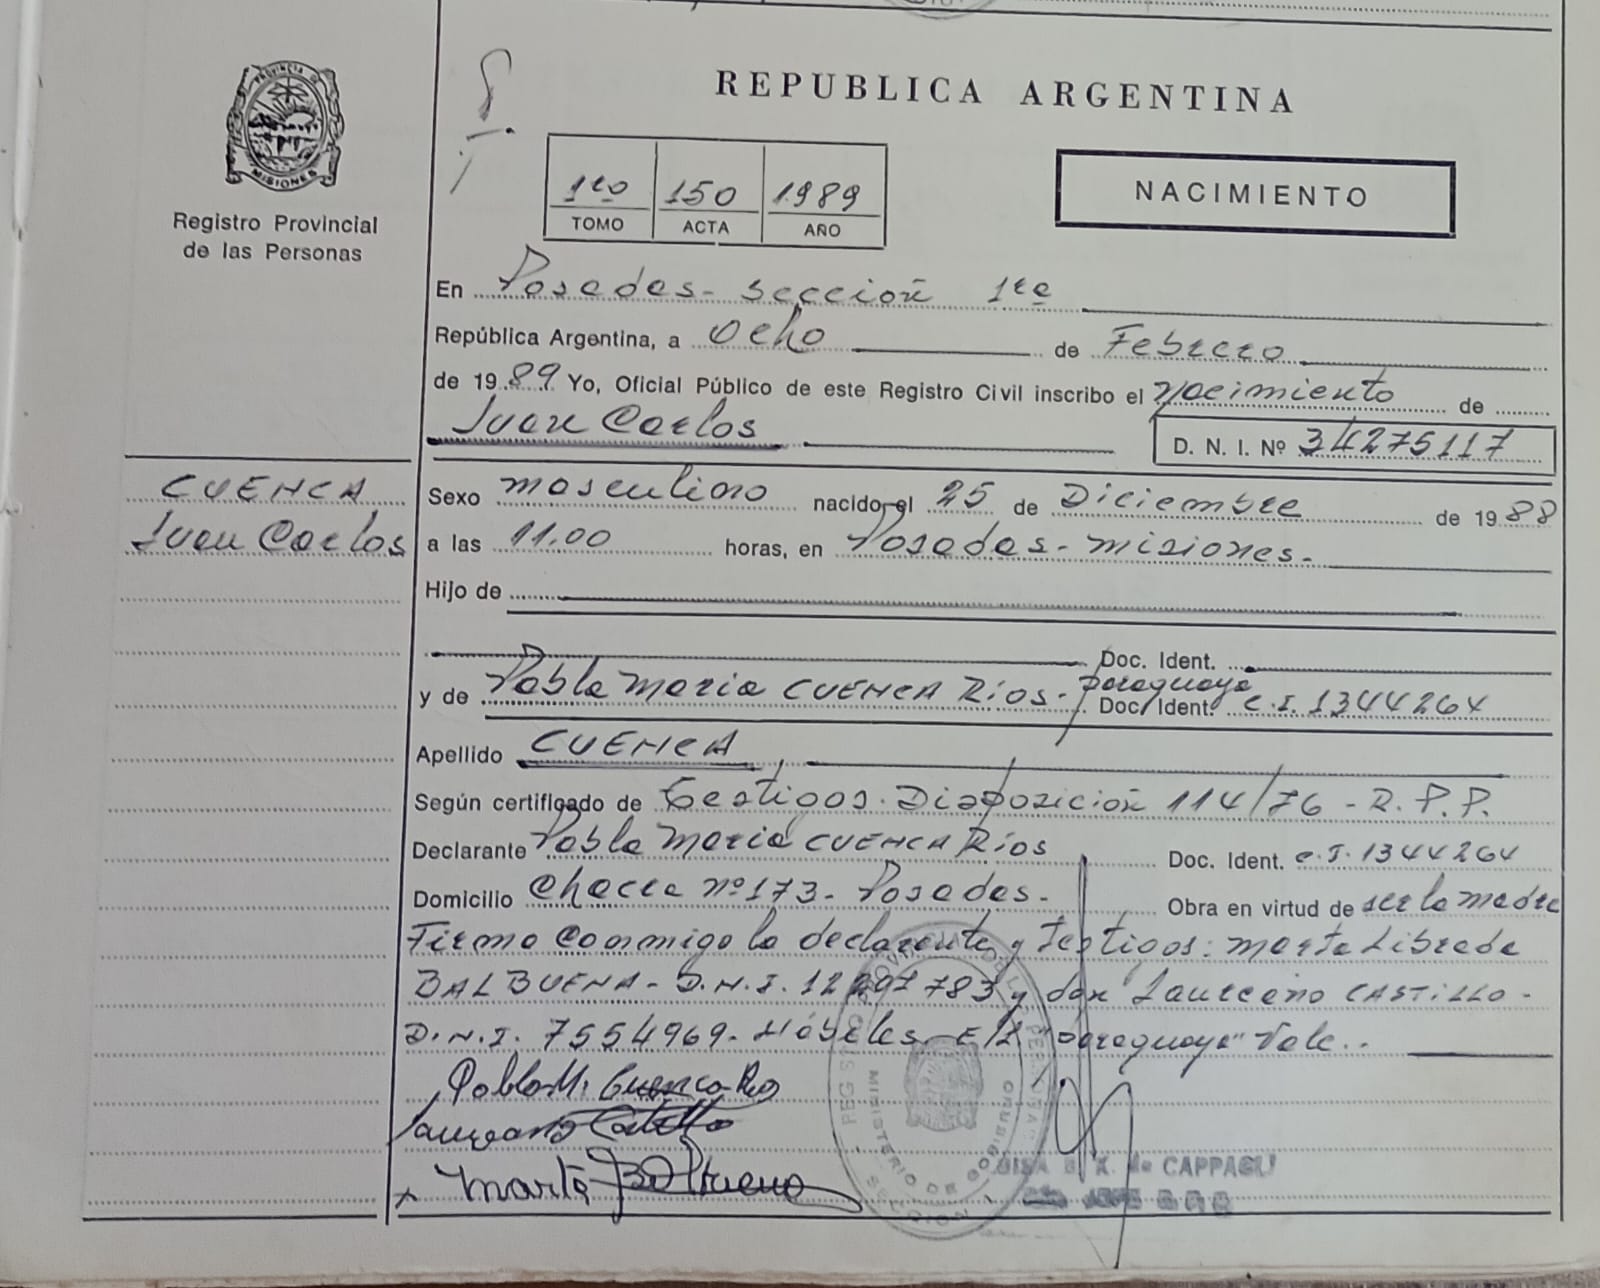 PROVINCIA DE
MISIONES
Registro Provincial
de las Personas
REPUBLICA ARGENTINA
1ro 150 1989
TOMO ACTA AÑO
NACIMIENTO
En Posadas - Sección 1ra
República Argentina, a Ocho de Febrero
de 1989. Yo, Oficial Público de este Registro Civil inscribo el Nacimiento de
Juan Carlos
D. N. I. Nº 34275117
CUENCA
Juan Carlos
Sexo masculino nacido el 25 de Diciembre de 1988
a las 11.00 horas, en Posadas - misiones -
Hijo de
Doc. Ident.
y de Pabla Maria CUENCA Ríos - paraguaya Doc. Ident. C.I. 1344264
Apellido CUENCA
Según certificado de Testigos. Disposición 114/76 - R. P. P.
Declarante Pabla Maria CUENCA Ríos Doc. Ident. C.I. 1344264
Domicilio Chacra nº 173 - Posadas - Obra en virtud de ser la madre
Firma conmigo la declarante y Testigos: Marta Librada
BALBUENA - D.N.I. 783 y don Laureano CASTILLO -
D.N.I. 7554969 - Hábiles - E/L "paraguaya" Vale. -
Pabla M. Cuenca Rios
Laureano Castillo
x Marta Balbuena
MINISTERIO DE GOBIERNO
SECCION
de CAPPAGLI